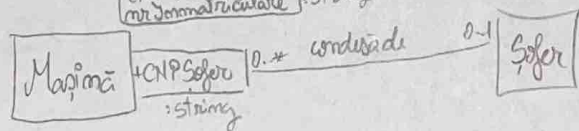 nrInmatriculare
Mașină
+CNPSofer
:string
0..*
condusăde
0..1
Șofer